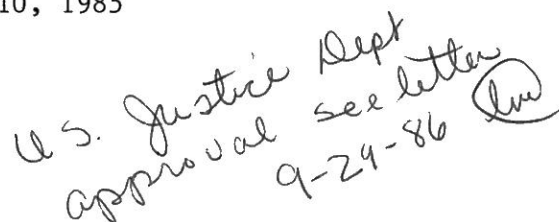 10, 1985
U.S. Justice Dept
approval see letter
9-29-86